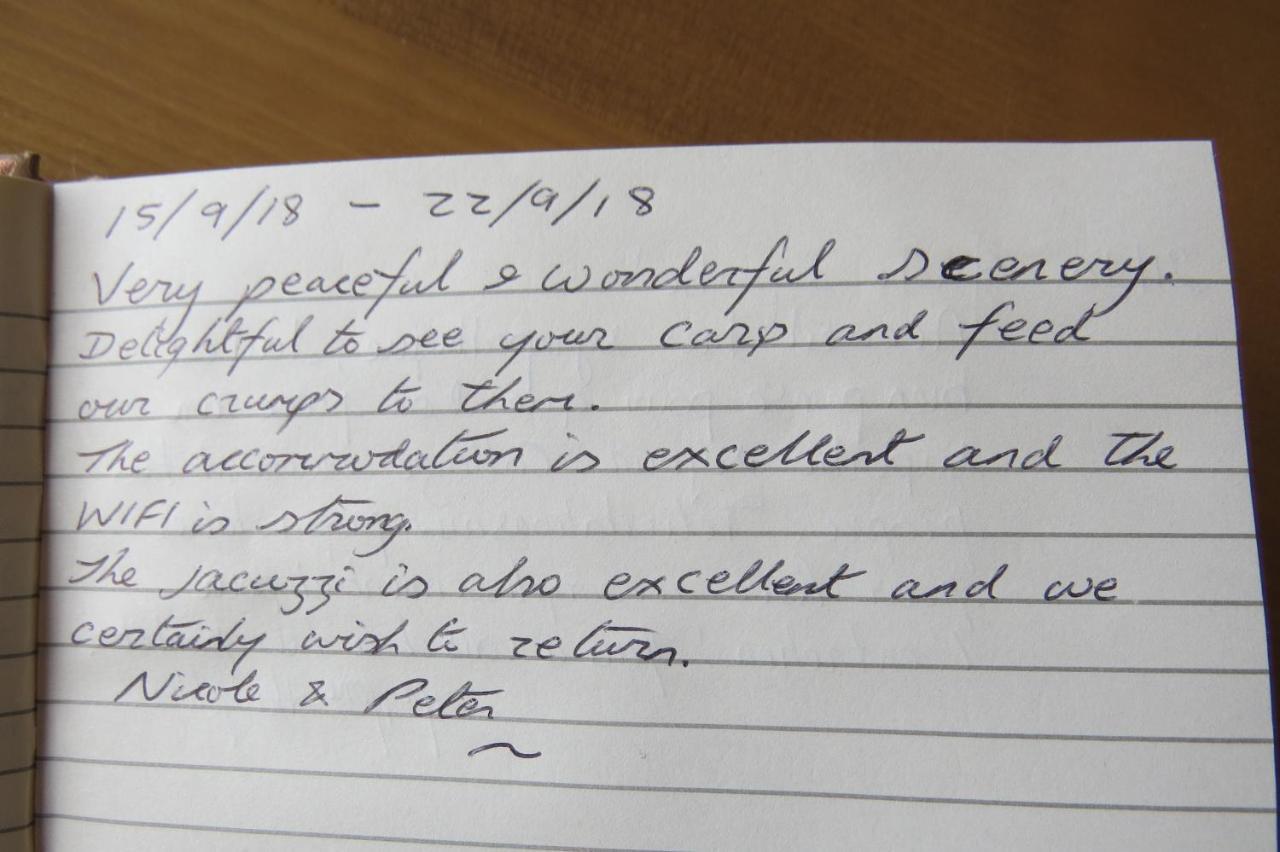 15/9/18 - 22/9/18
Very peaceful & wonderful scenery.
Delightful to see your carp and feed
our crumps to them.
The accommodation is excellent and the
WIFI is strong.
The jacuzzi is also excellent and we
certainly wish to return.
Nicole & Peter